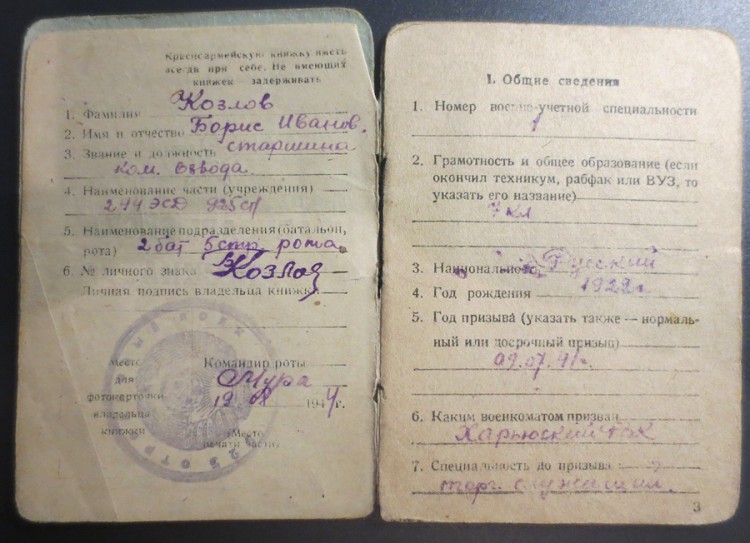 Красноармейскую книжку иметь
всегда при себе. Не имеющих
книжек задерживать
1. Фамилия Козлов
2. Имя и отчество Борис Иванов.
3. Звание и должность старшина
ком. взвода.
4. Наименование части (учреждения)
925сп
5. Наименование подразделения (батальон,
рота) 2 бат 5 стр. рота.
6. № личного знака
Личная подпись владельца книжки
Место
для
фотокарточки
владельца
книжки
Командир роты
19 08 1944г.
(Место
печати части)
1. Общие сведения
1. Номер военно-учетной специальности
1
2. Грамотность и общее образование (если
окончил техникум, рабфак или ВУЗ, то
указать его название)
7 кл
3. Национальн. Русский
4. Год рождения
5. Год призыва (указать также — нормаль-
ный или досрочный призыв)
09.07.41г.
6. Каким военкоматом призван
7. Специальность до призыва
торг. служащий.
3